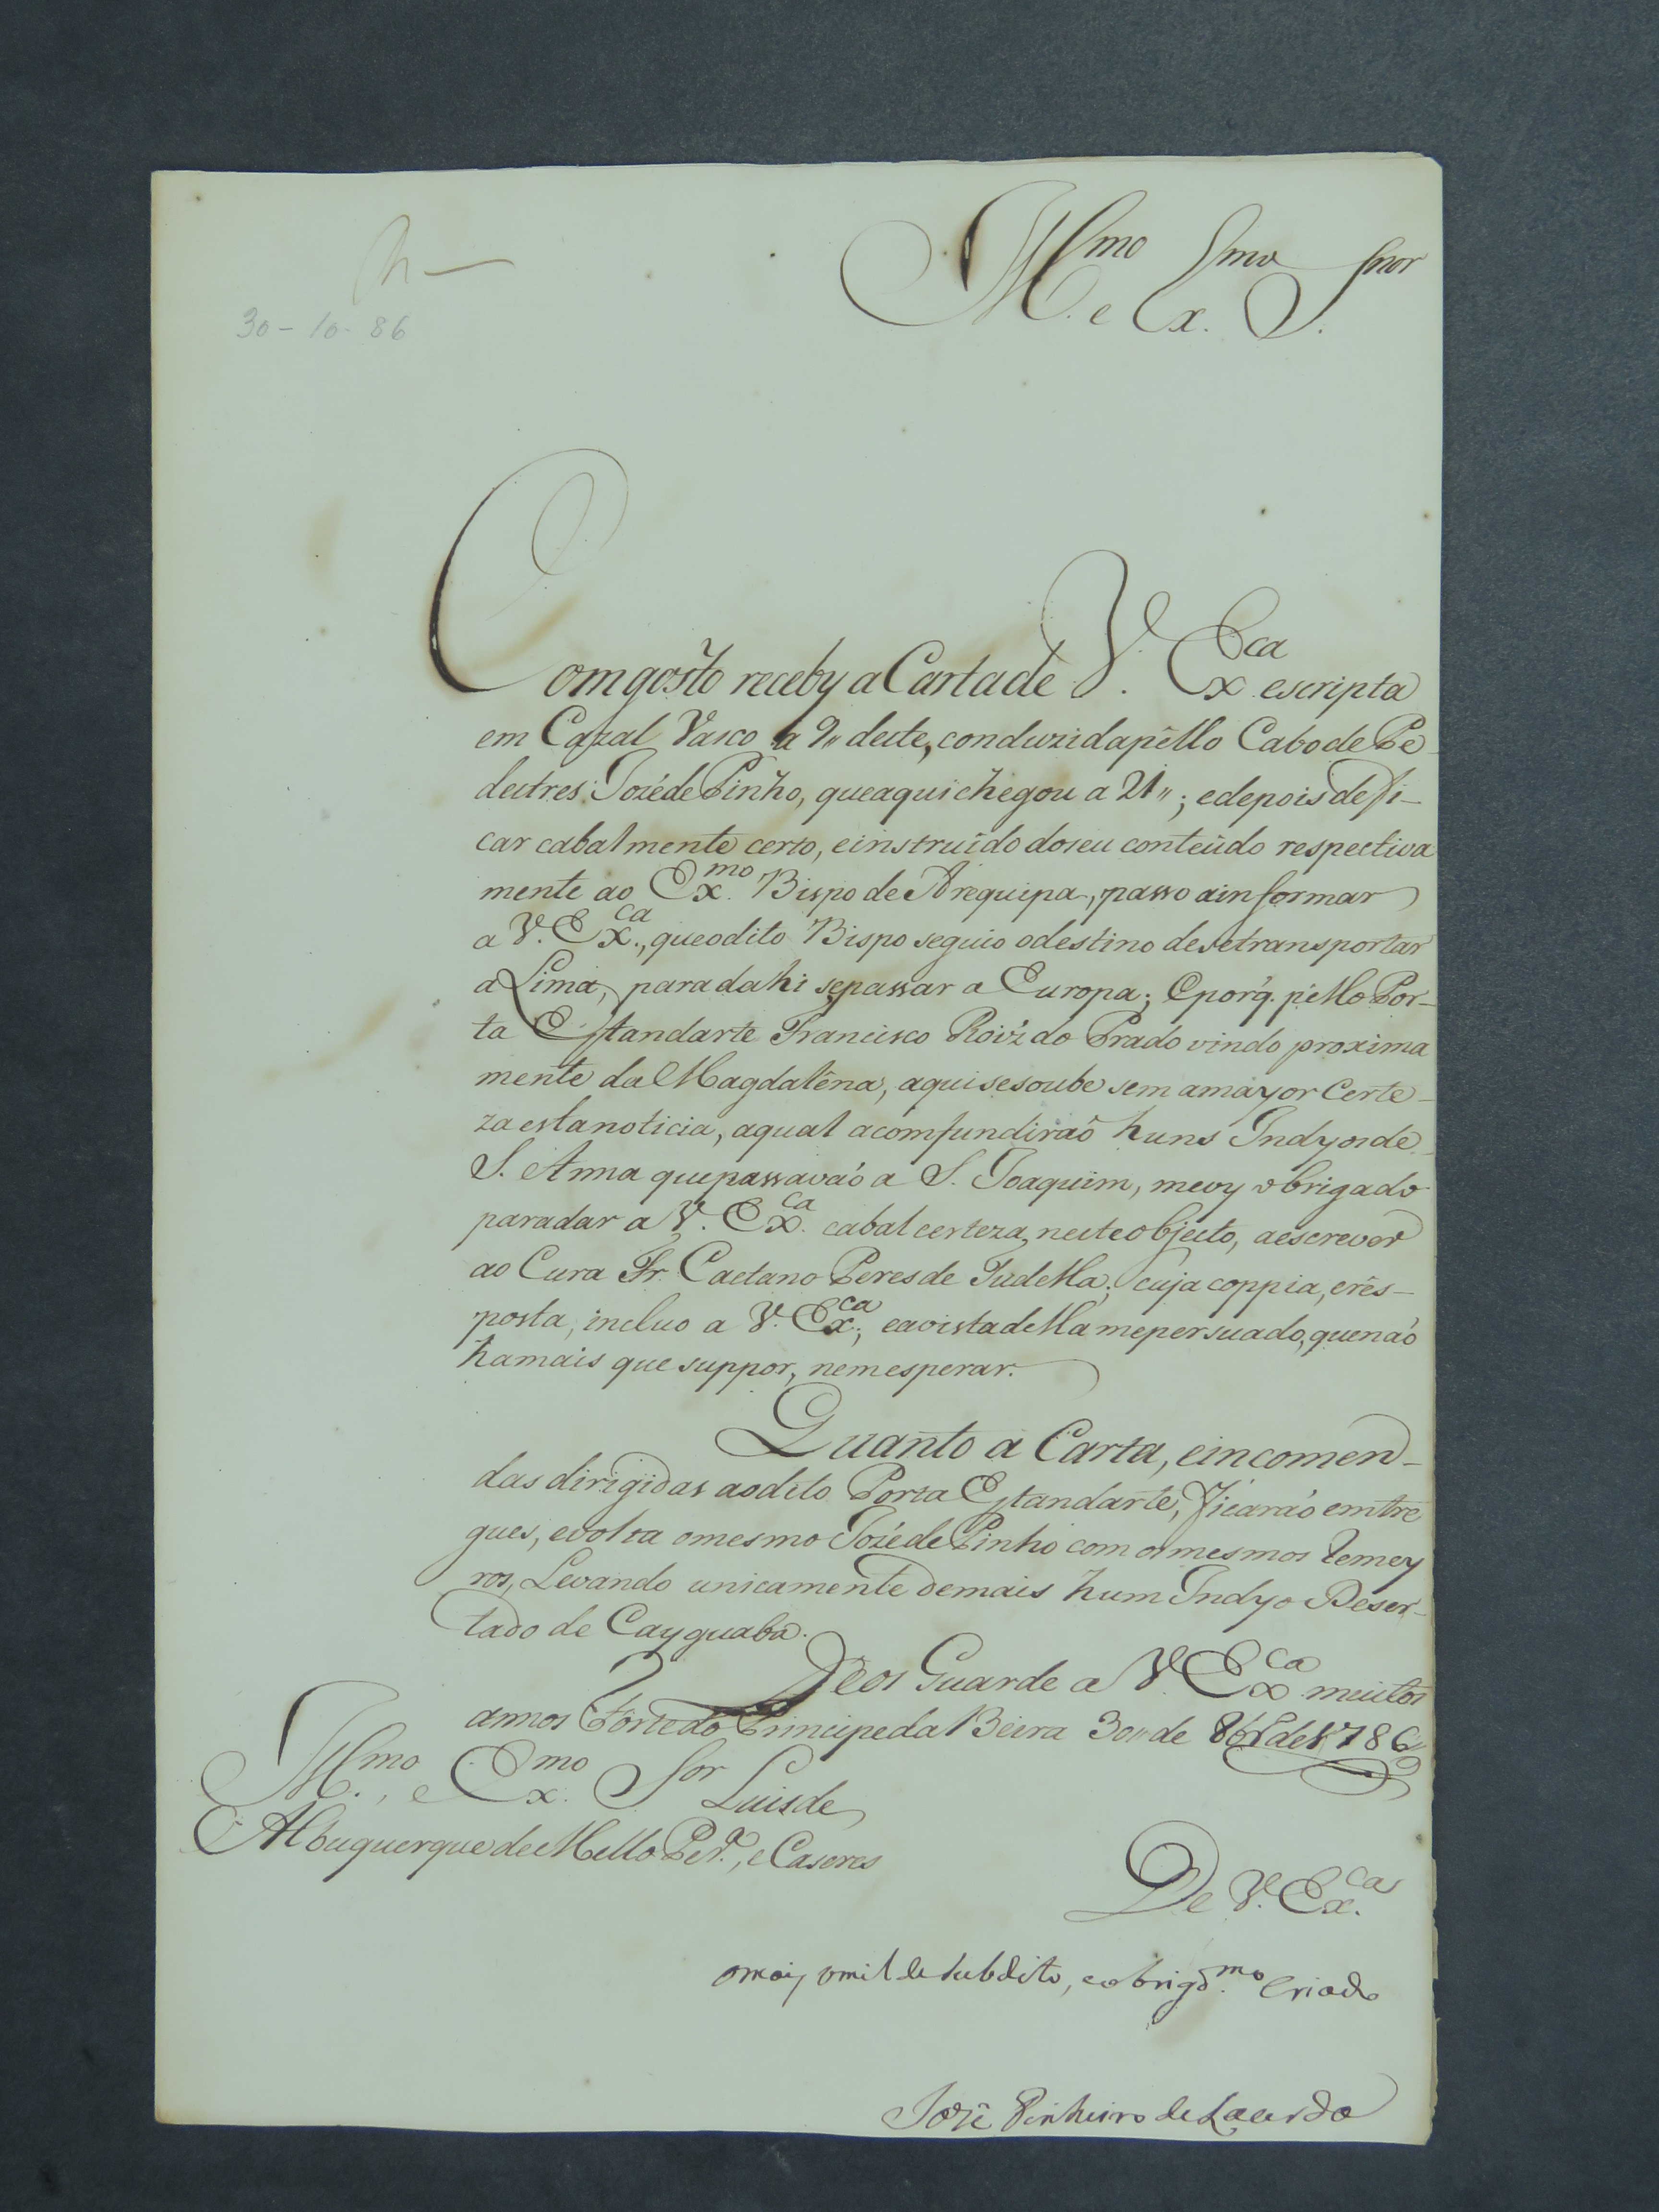 Ill.mo e Ex.mo Snor
30-10-86
Com gosto receby a Carta de V. Ex.ca escripta
em Cazal Vasco a 9,, deste, conduzida pêllo Cabo de Pe-
destres Jozé de Pinho, que aqui chegou a 21,,; e depois de fi-
car cabalmente certo, e instruido do seu conteúdo respectiva
mente ao Ex.mo Bispo de Arequipa, passo a informar
a V. Ex.ca, que o dito Bispo seguio o destino de se transportar
a Lima, para dahi se passar a Europa; E porq. pêllo Por-
ta Estandarte Francisco Roiz do Prado vindo proxima
mente da Magdalêna, aqui se soube sem a mayor Certe-
za esta noticia, a qual a comfundiraõ huns Indyos de
S. Anna que passavaõ a S. Joaquim, me vy obrigado
para dar a V. Ex.ca cabal certeza neste objecto, a escrever
ao Cura Fr. Caetano Peres de Tudella; cuja coppia, e rês-
posta, incluo a V. Ex.ca; e a vista della me persuado, que naõ
ha mais que suppor, nem esperar.
Quanto a Carta, e incomen-
das dirigidas ao dito Porta Estandarte, ficaraõ emtre
gues, e volta o mesmo Jozé de Pinho com os mesmos Remey
ros, Levando unicamente demais hum Indyo Deser-
tado de Cayguaba.
Deos Guarde a V. Ex.ca muitos
annos Forte do Principe da Beira 30,, de 8br.o de 1786
Ill.mo, e Ex.mo Sor Luis de
Albuquerque de Mello Per.a, e Caseres
De V. Ex.ca
o mais umilde subdito, e obrigd.mo Criado
Jozê Pinheiro de Lacerda